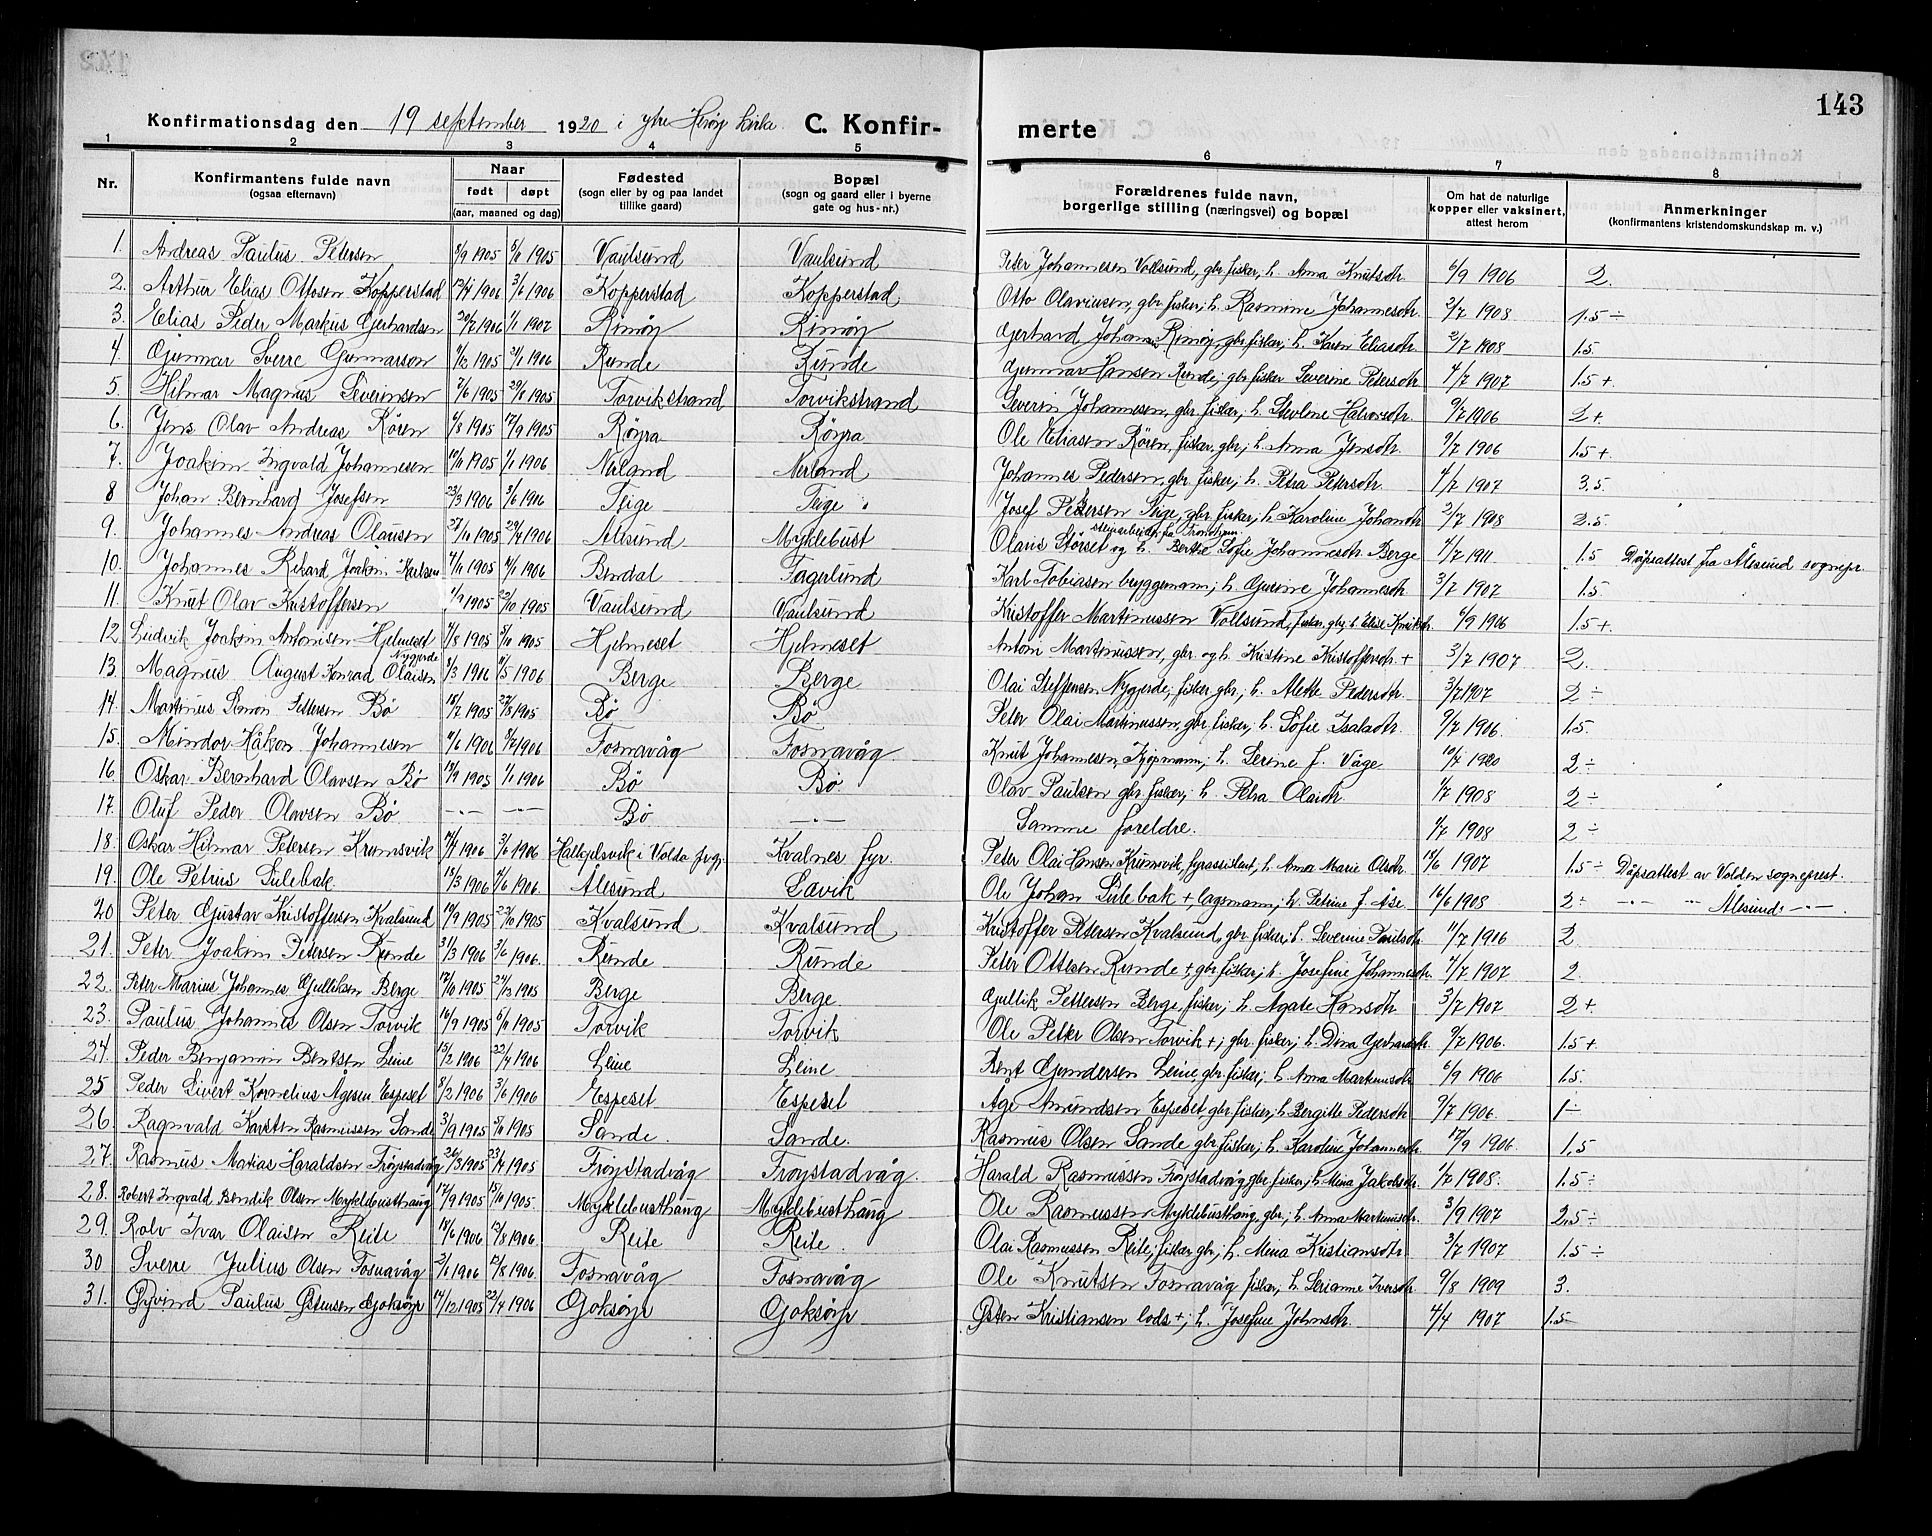 143
Konfirmationsdag den 19 september 1920 i ytre Herøy kirke. C. Konfirmerte
1 2 3 4 5 6 7 8
Nr. Konfirmantens fulde navn (ogsaa efternavn) Naar født døpt (aar, maaned og dag) Fødested (sogn eller by og paa landet tillike gaard) Bopæl (sogn og gaard eller i byerne gate og hus-nr.) Forældrenes fulde navn, borgerlige stilling (næringsvei) og bopæl Om hat de naturlige kopper eller vaksinert, attest herom Anmerkninger (konfirmantens kristendomskundskap m. v.)
1. Andreas Paulus Petersen 8/9 1905 5/11 1905 Vaulsund Vaulsund Peter Johannesen Vollsund, gbr fisker, h. Anna Knutsdtr. 6/9 1906 2.
2. Arthur Elias Ottosen Kopperstad 1906 3/6 1906 Kopperstad Kopperstad Otto Olaviusen, gbr fisker; h. Rasmine Johannesdtr. 2/7 1908 1.5 ÷
3. Elias Peder Markus Gerhardsen 20/7 1906 1/1 1907 Rimøy Rimøy Gerhard Johans. Rimøy, gbr fisker, h. Karen Eliasdtr. 2/7 1908 1.5.
4. Gunnar Sverre Gunnarson 1/12 1905 21/1 1906 Runde Runde Gunnar Hansen Runde; gbr fisker Severine Petersdtr. 4/7 1907 1.5 +.
5. Hilmar Magnus Severinsen 7/6 1905 1905 Torvikstrand Torvikstrand Severin Johannesen, gbr fisker; h. Halvorsdtr. 9/7 1906 2 +
6. Jens Olav Andreas Røren 6/8 1905 17/9 1905 Røyra Røyra Ole Eliasen Røren, fisker, gbr; h. Anna Jensdtr. 9/7 1906 1.5 +.
7. Joakim Ingvald Johannesen 10/11 1905 1/1 1906 Nerland Nerland Johannes Pedersen, gbr fisker; h. Petra Petersdtr. 4/7 1907 3.5.
8 Johan Bernhard Josefsen 23/3 1906 3/6 1906 Teige Teige Josef Pedersen Teige, gbr fisker; h. Karoline Johansdtr 2/7 1908 2.5.
9. Johannes Andreas Olausen 27/11 1905 29/4 1906 Ålesund Myklebust Olaus Størset stenarbeider fra Trondhjem og h. Bertie Sofie Johannesdtr. Berge 1/7 1911 1.5 Dåpsattest fra Ålesund sognepr.
10. Johannes Rikard Joakim Karlsen 7/11 1905 4/1 1906 Bendal Fagerlund Karl Tobiassen bryggemann; h. Gurine Johannesdtr 3/7 1907 1.5.
11. Knut Olav Kristoffersen 1/9 1905 22/10 1905 Vaulsund Vaulsund Kristoffer Martinussen Vollsund, fisker, gbr, h. Elise Knutsdtr. 6/9 1906 1.5 +.
12. Ludvik Joakim Antonsen Hjelmeset 7/8 1905 8/10 1905 Hjelmeset Hjelmeset Anton Martinussen, gbr og h. Kristine Kristoffersdtr + 3/7 1907 2.
13. Magnus August Konrad Olaisen Nygjerde 3/3 1906 1906 Berge Berge Olai Steffensen Nygjerde; fisker gbr; h. Alette Pedersdtr. 3/7 1907 2 ÷
14. Martinus Simon Pettersen Bø 16/7 1905 27/8 1905 Bø Bø Peter Olai Martinussen, gbr fisker; h. Sofie Isaksdtr. 9/7 1906. 1.5.
15. Mindor Håkon Johannesen 4/6 1906 8/7 1906 Fosnavåg Fosnavåg Knut Johannesen, Kjøpmann; h. Serine f. Våge 10/7 1920 2 ÷
16 Oskar Bernhard Olavsen Bø 1905 1/1 1906 Bø Bø Olav Paulsen gbr fisker; h. Petra Olaidtr. 1/7 1908 2 ÷
17. Oluf Peder Olavsen Bø —"— —"— Bø —"— Samme foreldre. 1/7 1908 2 ÷
18. Oskar Hilmar Petersen Krumsvik 14/4 1906 3/6 1906 i Volda prgj. Kvalnes fyr. Peter Olai Hansen Krumsvik, fyrassistent, h. Anna Marie Olsdtr. 1907 1.5 ÷ Dåpsattest av Volden sogneprest.
19. Ole Petrus Sulebak. 15/3 1906 4/6 1906. Ålesund Levik Ole Johan Sulebak +, lagemann; h. Petrine f. Åse 16/6 1908 2 ÷ —"— " Ålesunds —"— .
20 Peter Gustav Kristoffersen Kvalsund 10/9 1905 22/10 1905 Kvalsund Kvalsund Kristoffer Petersen Kvalsund, gbr fisker, h. Severine Paulsdtr 11/7 1906 2
21. Peter Joakim Petersen Runde 31/3 1906 3/6 1906. Runde Runde Peter Ottesen Runde +, gbr fisker; h. Josefine Johannesdtr. 4/7 1907 2.
22. Peter Marius Johannes Gulliksen Berge 17/10 1905 24/12 1905 Berge Berge Gullik Pettersen Berge, fisker; h. Agate Hansdtr. 3/7 1907 2 +
23. Paulus Johannes Olsen Torvik 16/9 1905 5/11 1905 Torvik Torvik Ole Petter Olsen Torvik +; gbr fisker; h. Dina Gerhardsdtr. 9/7 1906. 1.5 +
24. Peder Benjamin Bentsen Leine 15/2 1906 22/4 1906 Leine Leine Bent Gundersen Leine, gbr fisker; h. Anna Martinusdtr 6/9 1906 1.5.
25 Peder Sivert Kornelius Ågesen Espeset 8/2 1906 3/6 1906 Espeset Espeset Åge Amundsen Espeset, gbr fisker; h. Bergitte Pedersdtr. 9/7 1906. 1 ÷
26. Ragnvald Karsten Rasmussen Sande 3/9 1905 8/10 1905 Sande. Sande. Rasmus Olsen Sande gbr fisker; h. Karoline Johannesdtr. 17/9 1906. 1,5
27. Rasmus Matias Haraldsen Frøystadvåg 26/3 1905 23/4 1905 Frøystadvåg Frøystadvåg. Harald Rasmussen Frøystadvåg, gbr fisker; h. Mina Jakobsdtr. 1/7 1908. 1.5 ÷
28. Robert Ingvald Bendik Olsen Myklebusthaug 17/9 1905 15/10 1905. Myklebusthaug Myklebusthaug Ole Rasmussen Myklebusthaug, gbr; h. Anna Martinusdtr. 3/9 1907 2.5 ÷
29. Rolv Ivar Olaisen Reite 14/6 1906 12/8 1906. Reite Reite. Olai Rasmussen Reite; fisker gbr; h. Mina Kristiansdtr. 3/7 1907 1.5 ÷
30 Sverre Julius Olsen Fosnavåg 2/6 1906 12/8 1906. Fosnavåg Fosnavåg Ole Knutsen Fosnavåg fisker; h. Serianne Iversdtr. 9/8 1909 3.
31. Øyvind Paulus Østensen Goksøyr 14/12 1905 22/4 1906 Goksøyr Goksøyr Østen Kristiansen lods +; h. Josefine Johnsdtr. 4/4 1907 1.5